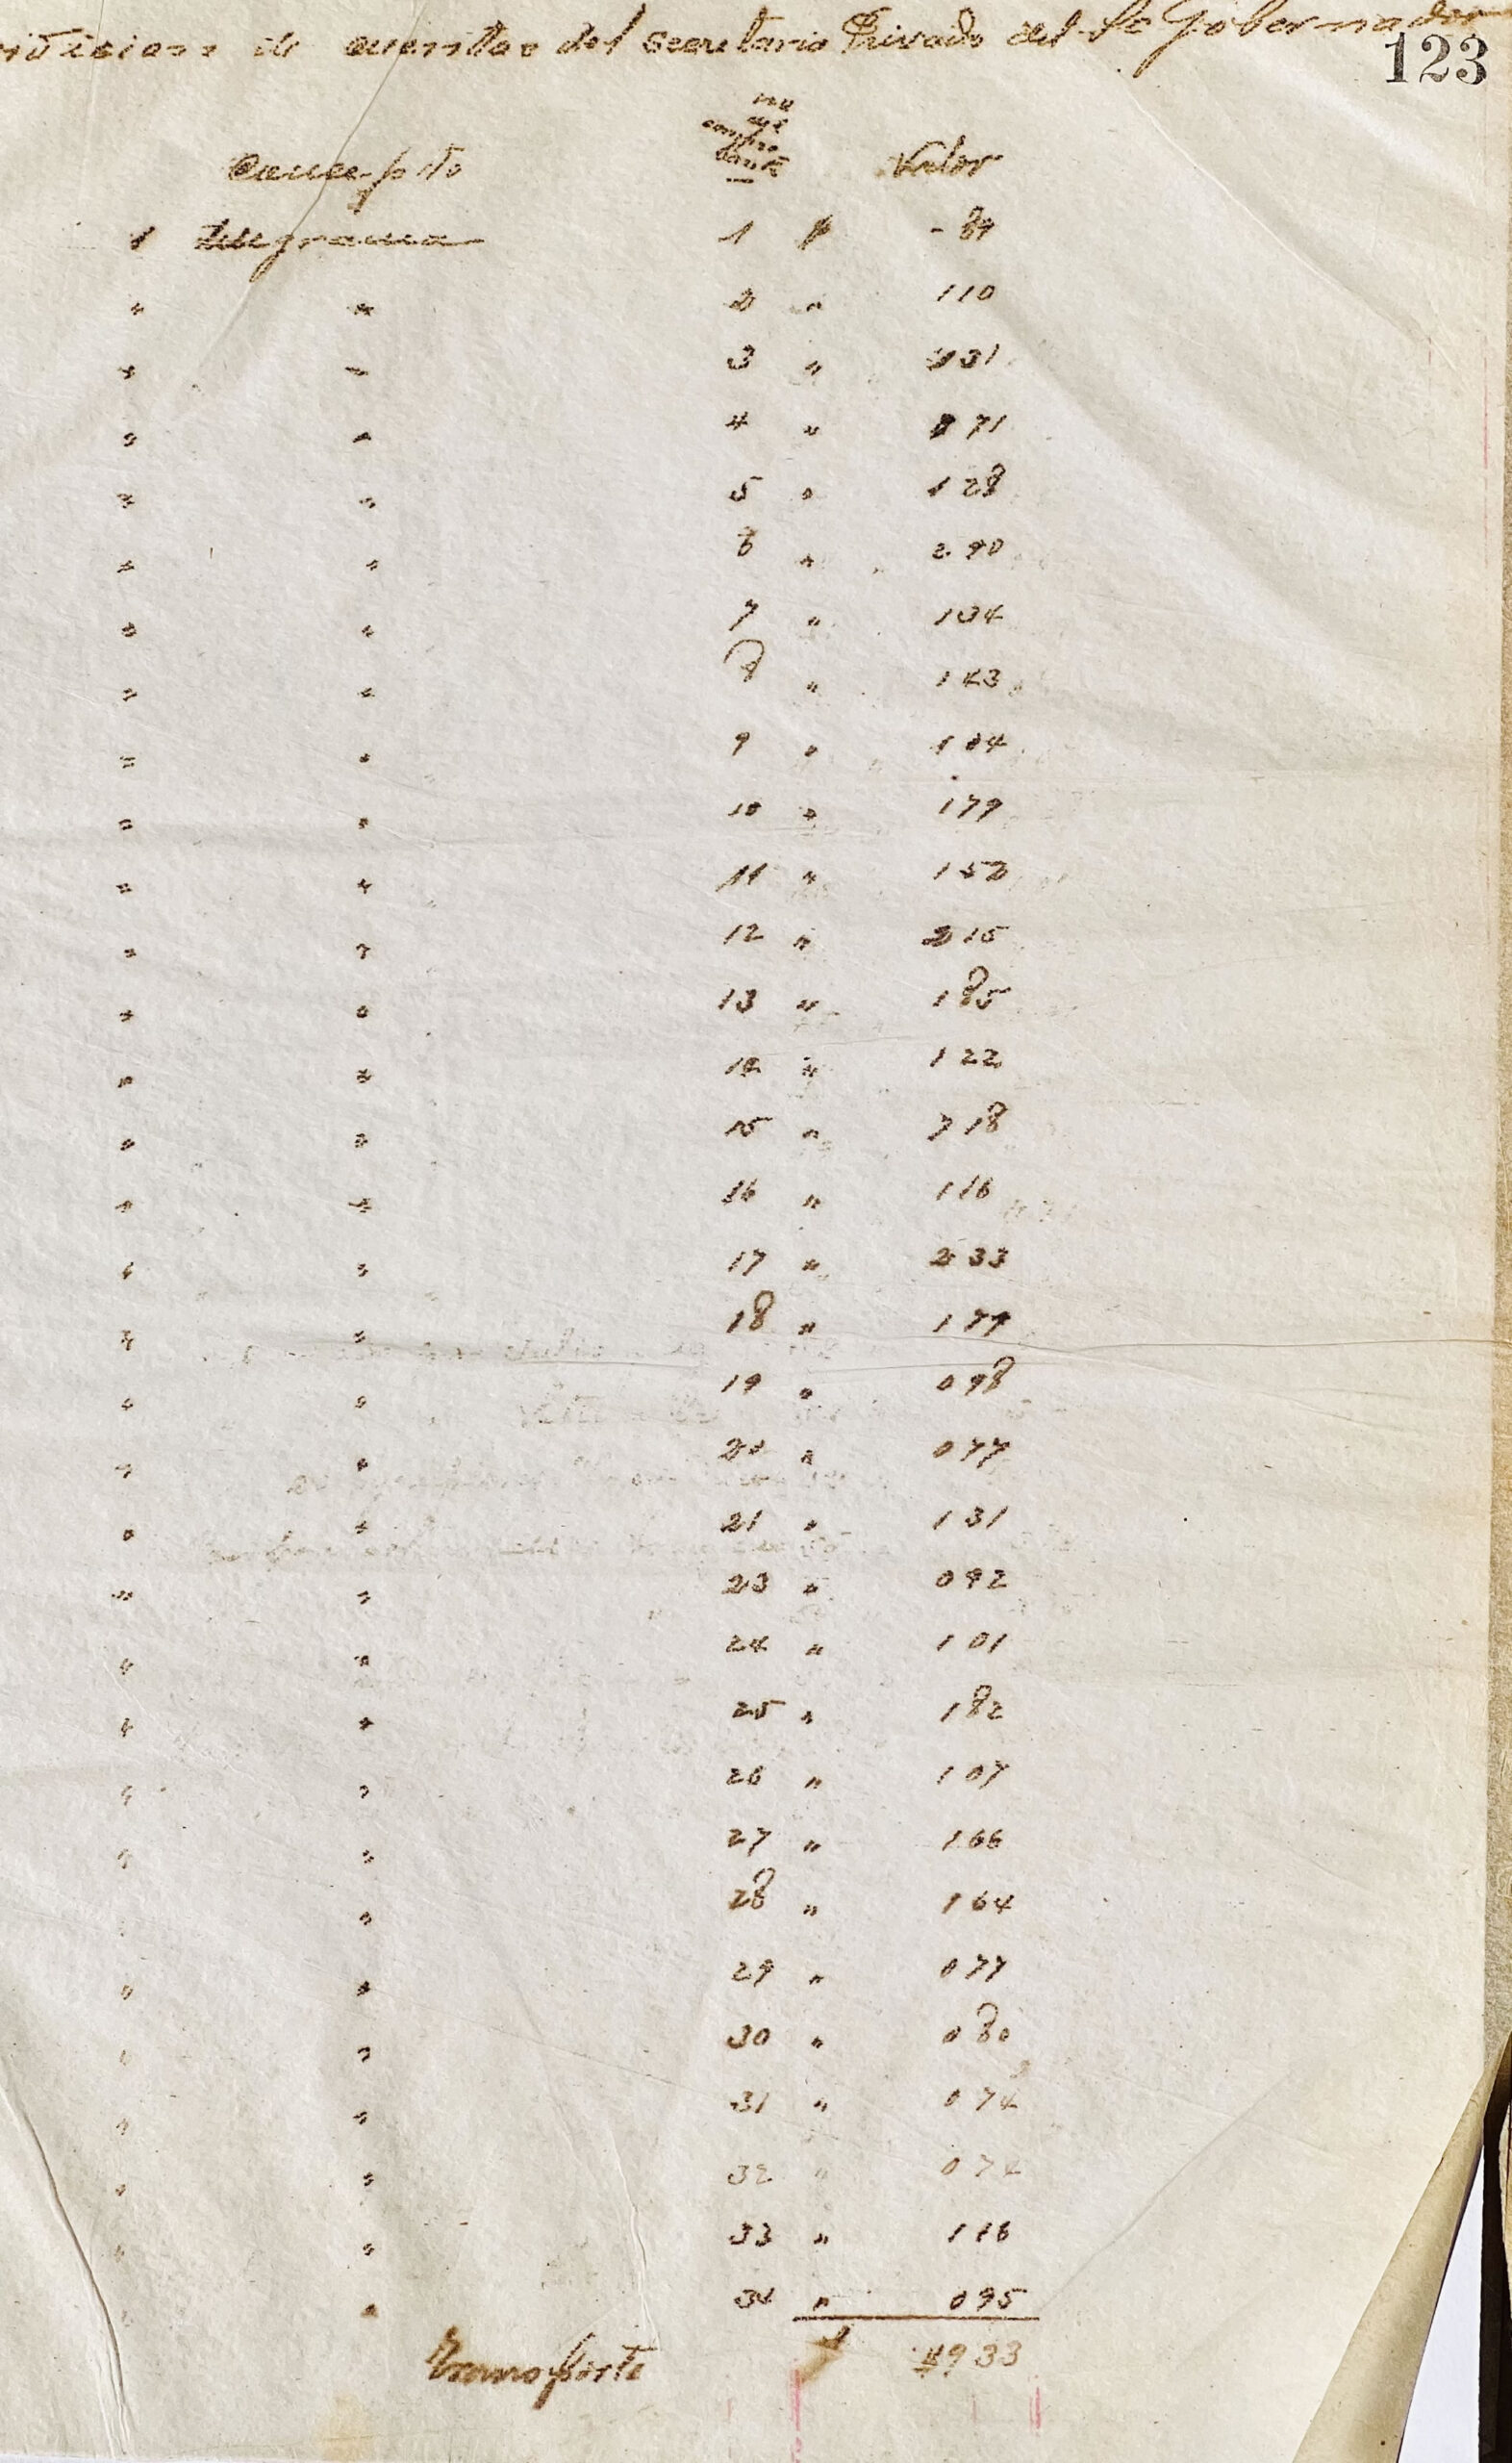 de cuentas del Secretario Privado del Sr Gobernador
123
Concepto Nro del comprobante Valor
1 telegrama 1 $ - 89
" " 2 " 110
" " 3 " 131
" " 4 " 171
" " 5 " 128
" " 6 " 2.90
" " 7 " 134
" " 8 " 143
" " 9 " 104
" " 10 " 179
" " 11 " 152
" " 12 " 215
" " 13 " 185
" " 14 " 122
" " 15 " 718
" " 16 " 116
" " 17 " 233
" " 18 " 179
" " 19 " 098
" " 20 " 077
" " 21 " 131
" " 23 " 092
" " 24 " 101
" " 25 " 182
" " 26 " 107
" " 27 " 166
" 28 " 164
" " 29 " 077
" " 30 " 080
" " 31 " 074
" " 32 " 074
" " 33 " 116
" 34 " 095
Transporte $ 4933